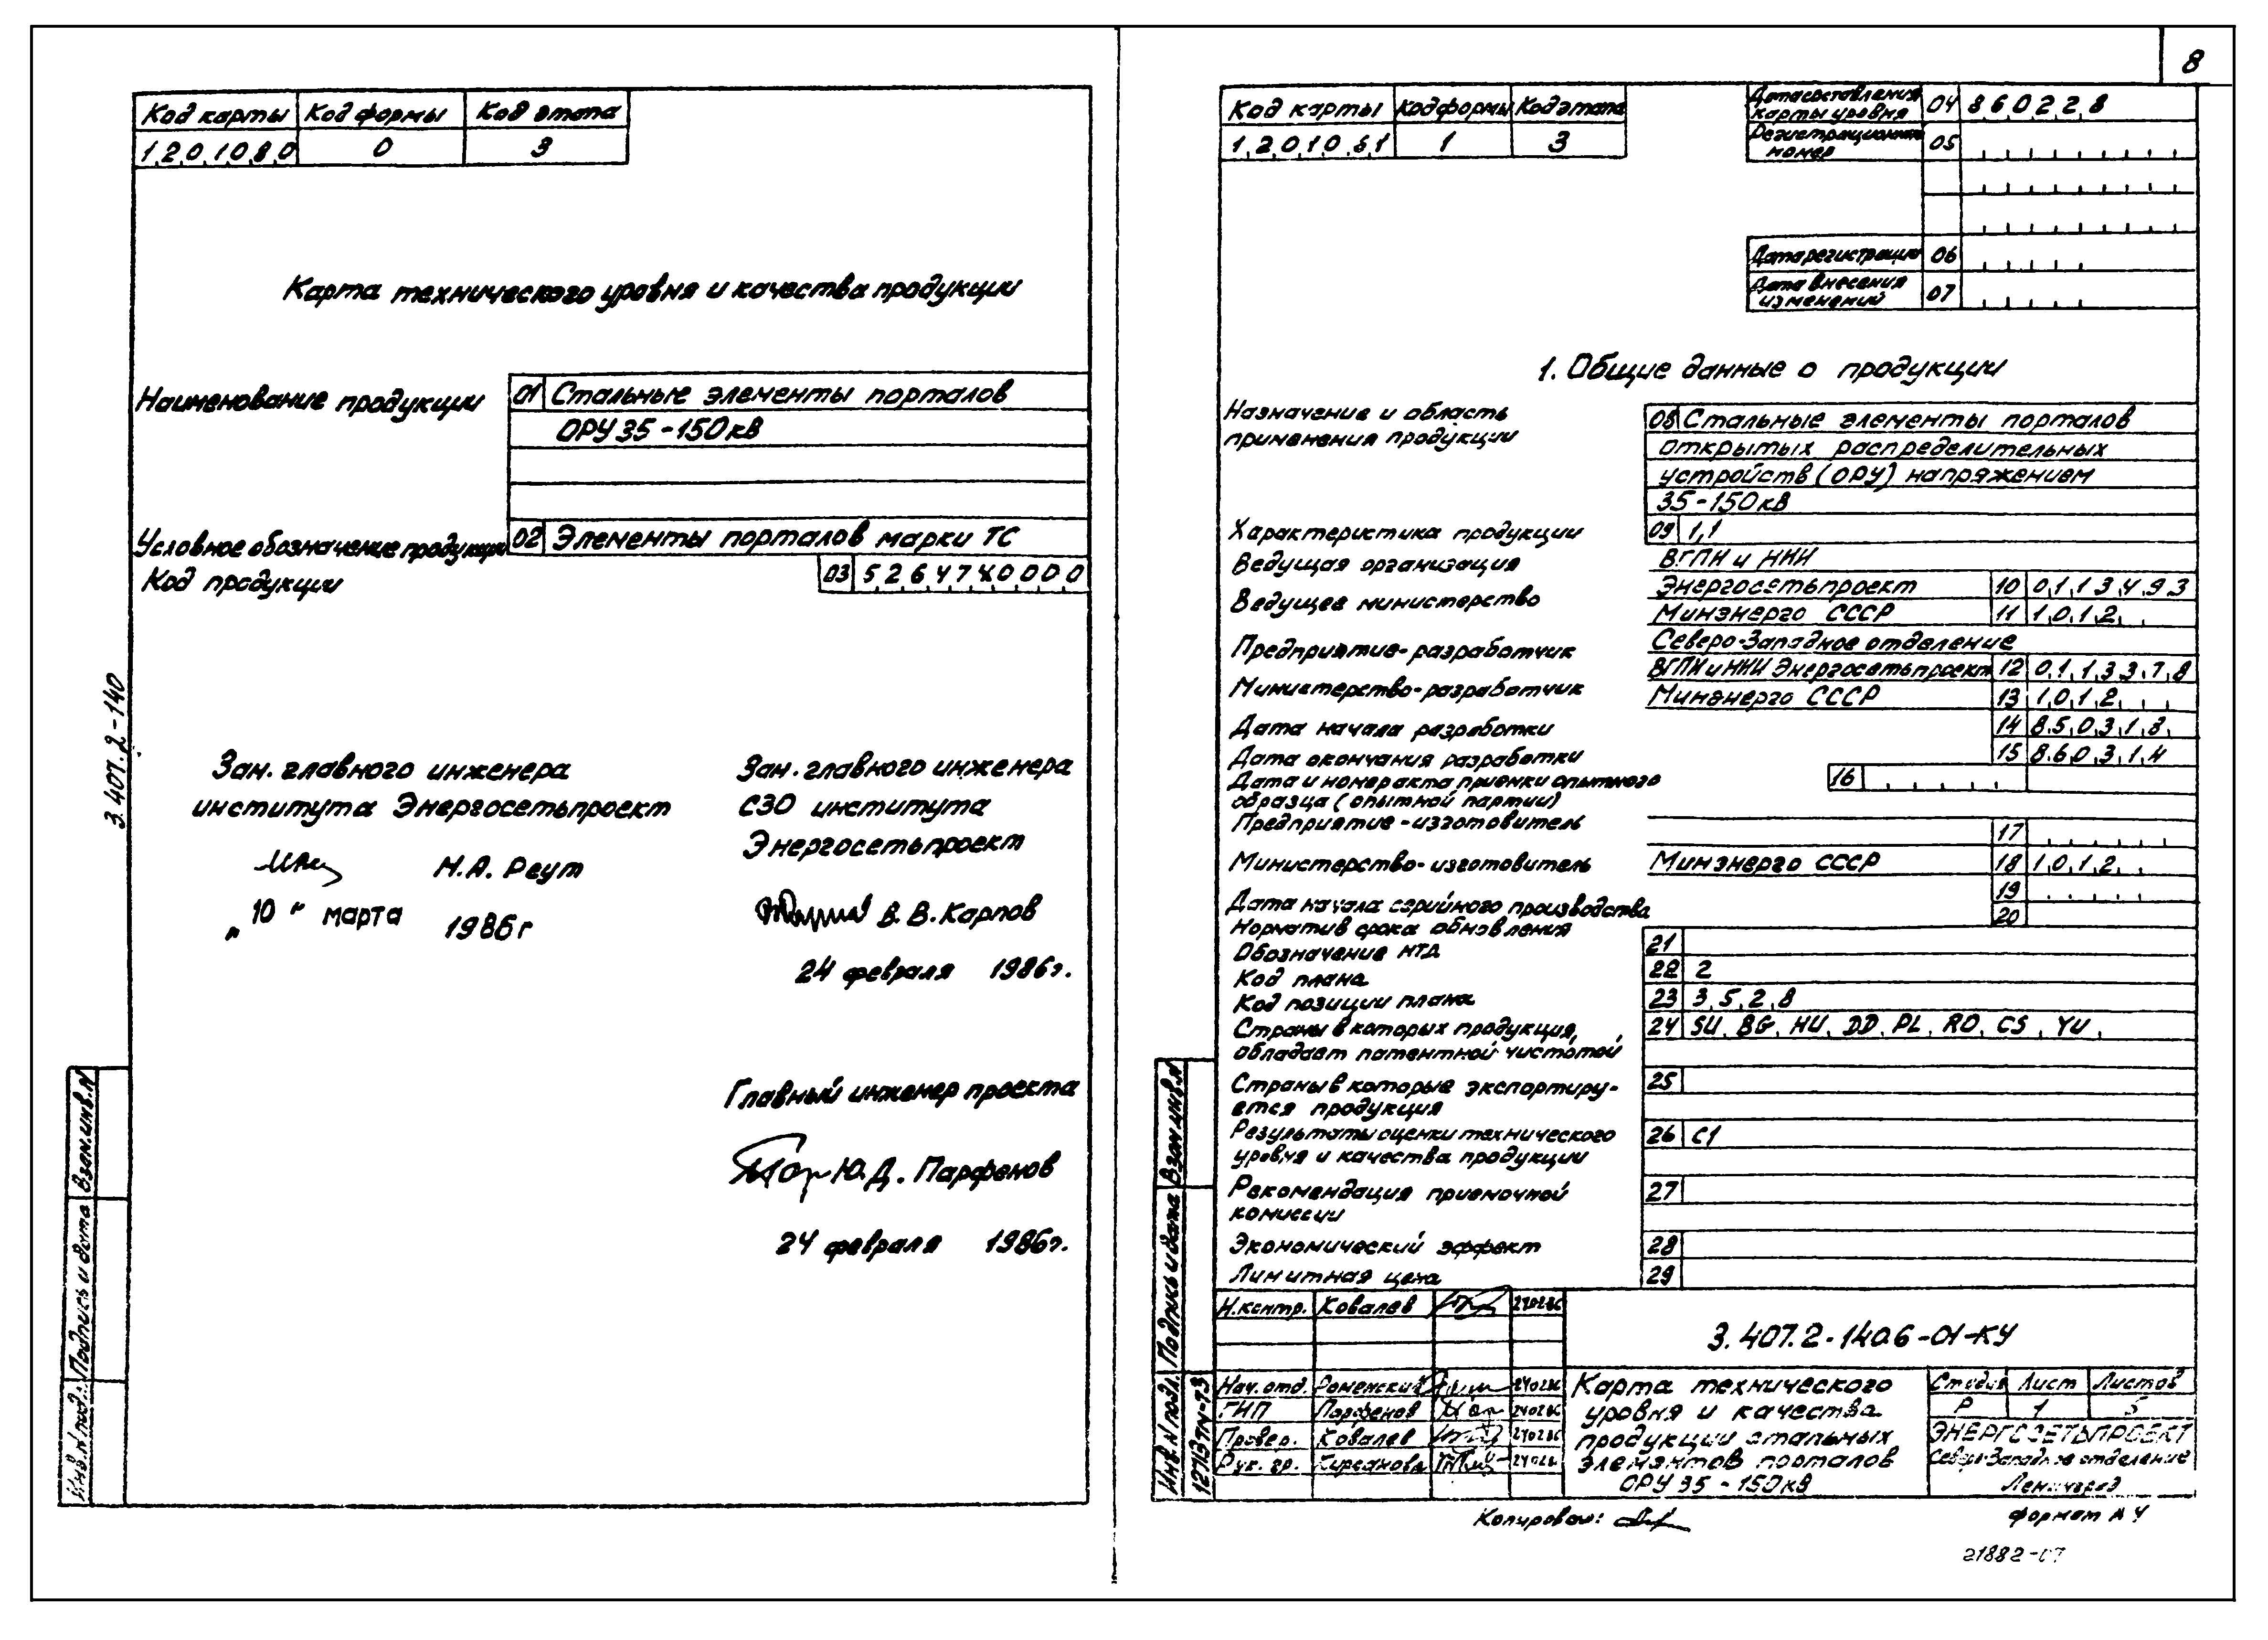 8
Код карты Код формы Код этапа
1.2.0.1.0.8.0 0 3
Карта технического уровня и качества продукции
Наименование продукции 01 Стальные элементы порталов
ОРУ 35-150кв
Условное обозначение продукции 02 Элементы порталов марки ТС
Код продукции 03
3.407.2-140
Зам. главного инженера
института Энергосетьпроект
Н.А. Реут
„10" марта 1986г
Зам. главного инженера
СЗО института
Энергосетьпроект
В.В. Карпов
24 февраля 1986г.
Главный инженер проекта
Ю.Д. Парфенов
24 февраля 1986г.
Взам.инв.N
Подпись и дата
Инв.N подл.
Код карты Код формы Код этапа
1 3
Дата составления
карты уровня 04 8.6.0.2.2.8
Регистрационный
номер 05
Дата регистрации 06
Дата внесения
изменений 07
1. Общие данные о продукции
Назначение и область
применения продукции
08 Стальные элементы порталов
открытых распределительных
устройств (ОРУ) напряжением
35-150кв
Характеристика продукции 09 1,1
Ведущая организация ВГПИ и НИИ
Энергосетьпроект 10 0.1.1.3.4.9.3
Ведущее министерство Минэнерго СССР 11 1.0.1.2.
Предприятие-разработчик Северо-Западное отделение
ВГПИ и НИИ Энергосетьпроект 12 0.1.1.3.3.7.8
Министерство-разработчик Минэнерго СССР 13 1.0.1.2.
Дата начала разработки 14 8.5.0.3.1.8.
Дата окончания разработки 15 8.6.0.3.1.4
Дата и номер акта приемки опытного 16
образца (опытной партии)
Предприятие-изготовитель 17
Министерство-изготовитель Минэнерго СССР 18 1.0.1.2.
Дата начала серийного производства 19
Норматив срока обновления 20
Обозначение НТД 21
Код плана 22 2
Код позиции плана 23 3.5.2.8
Страны в которых продукция, 24 SU, BG, HU, DD, PL, RO, CS, YU,
обладает патентной чистотой
Страны в которые экспортиру- 25
ется продукция
Результаты оценки технического 26 С1
уровня и качества продукции
Рекомендация приемочной 27
комиссии
Экономический эффект 28
Лимитная цена 29
Взам.инв.N
Подпись и дата
Инв.N подл.
Н.контр. Ковалев 240286
3.407.2-140.6-01-КУ
Нач.отд. Роменский 240286
ГИП Парфенов 240286
Провер. Ковалев 240286
Рук. гр. Кирсанова
Карта технического
уровня и качества
продукции стальных
элементов порталов
ОРУ 35-150кв
Стадия Лист Листов
Р 1 5
ЭНЕРГОСЕТЬПРОЕКТ
Северо-Западное отделение
Ленинград
Копировал:
формат А4
21882-07